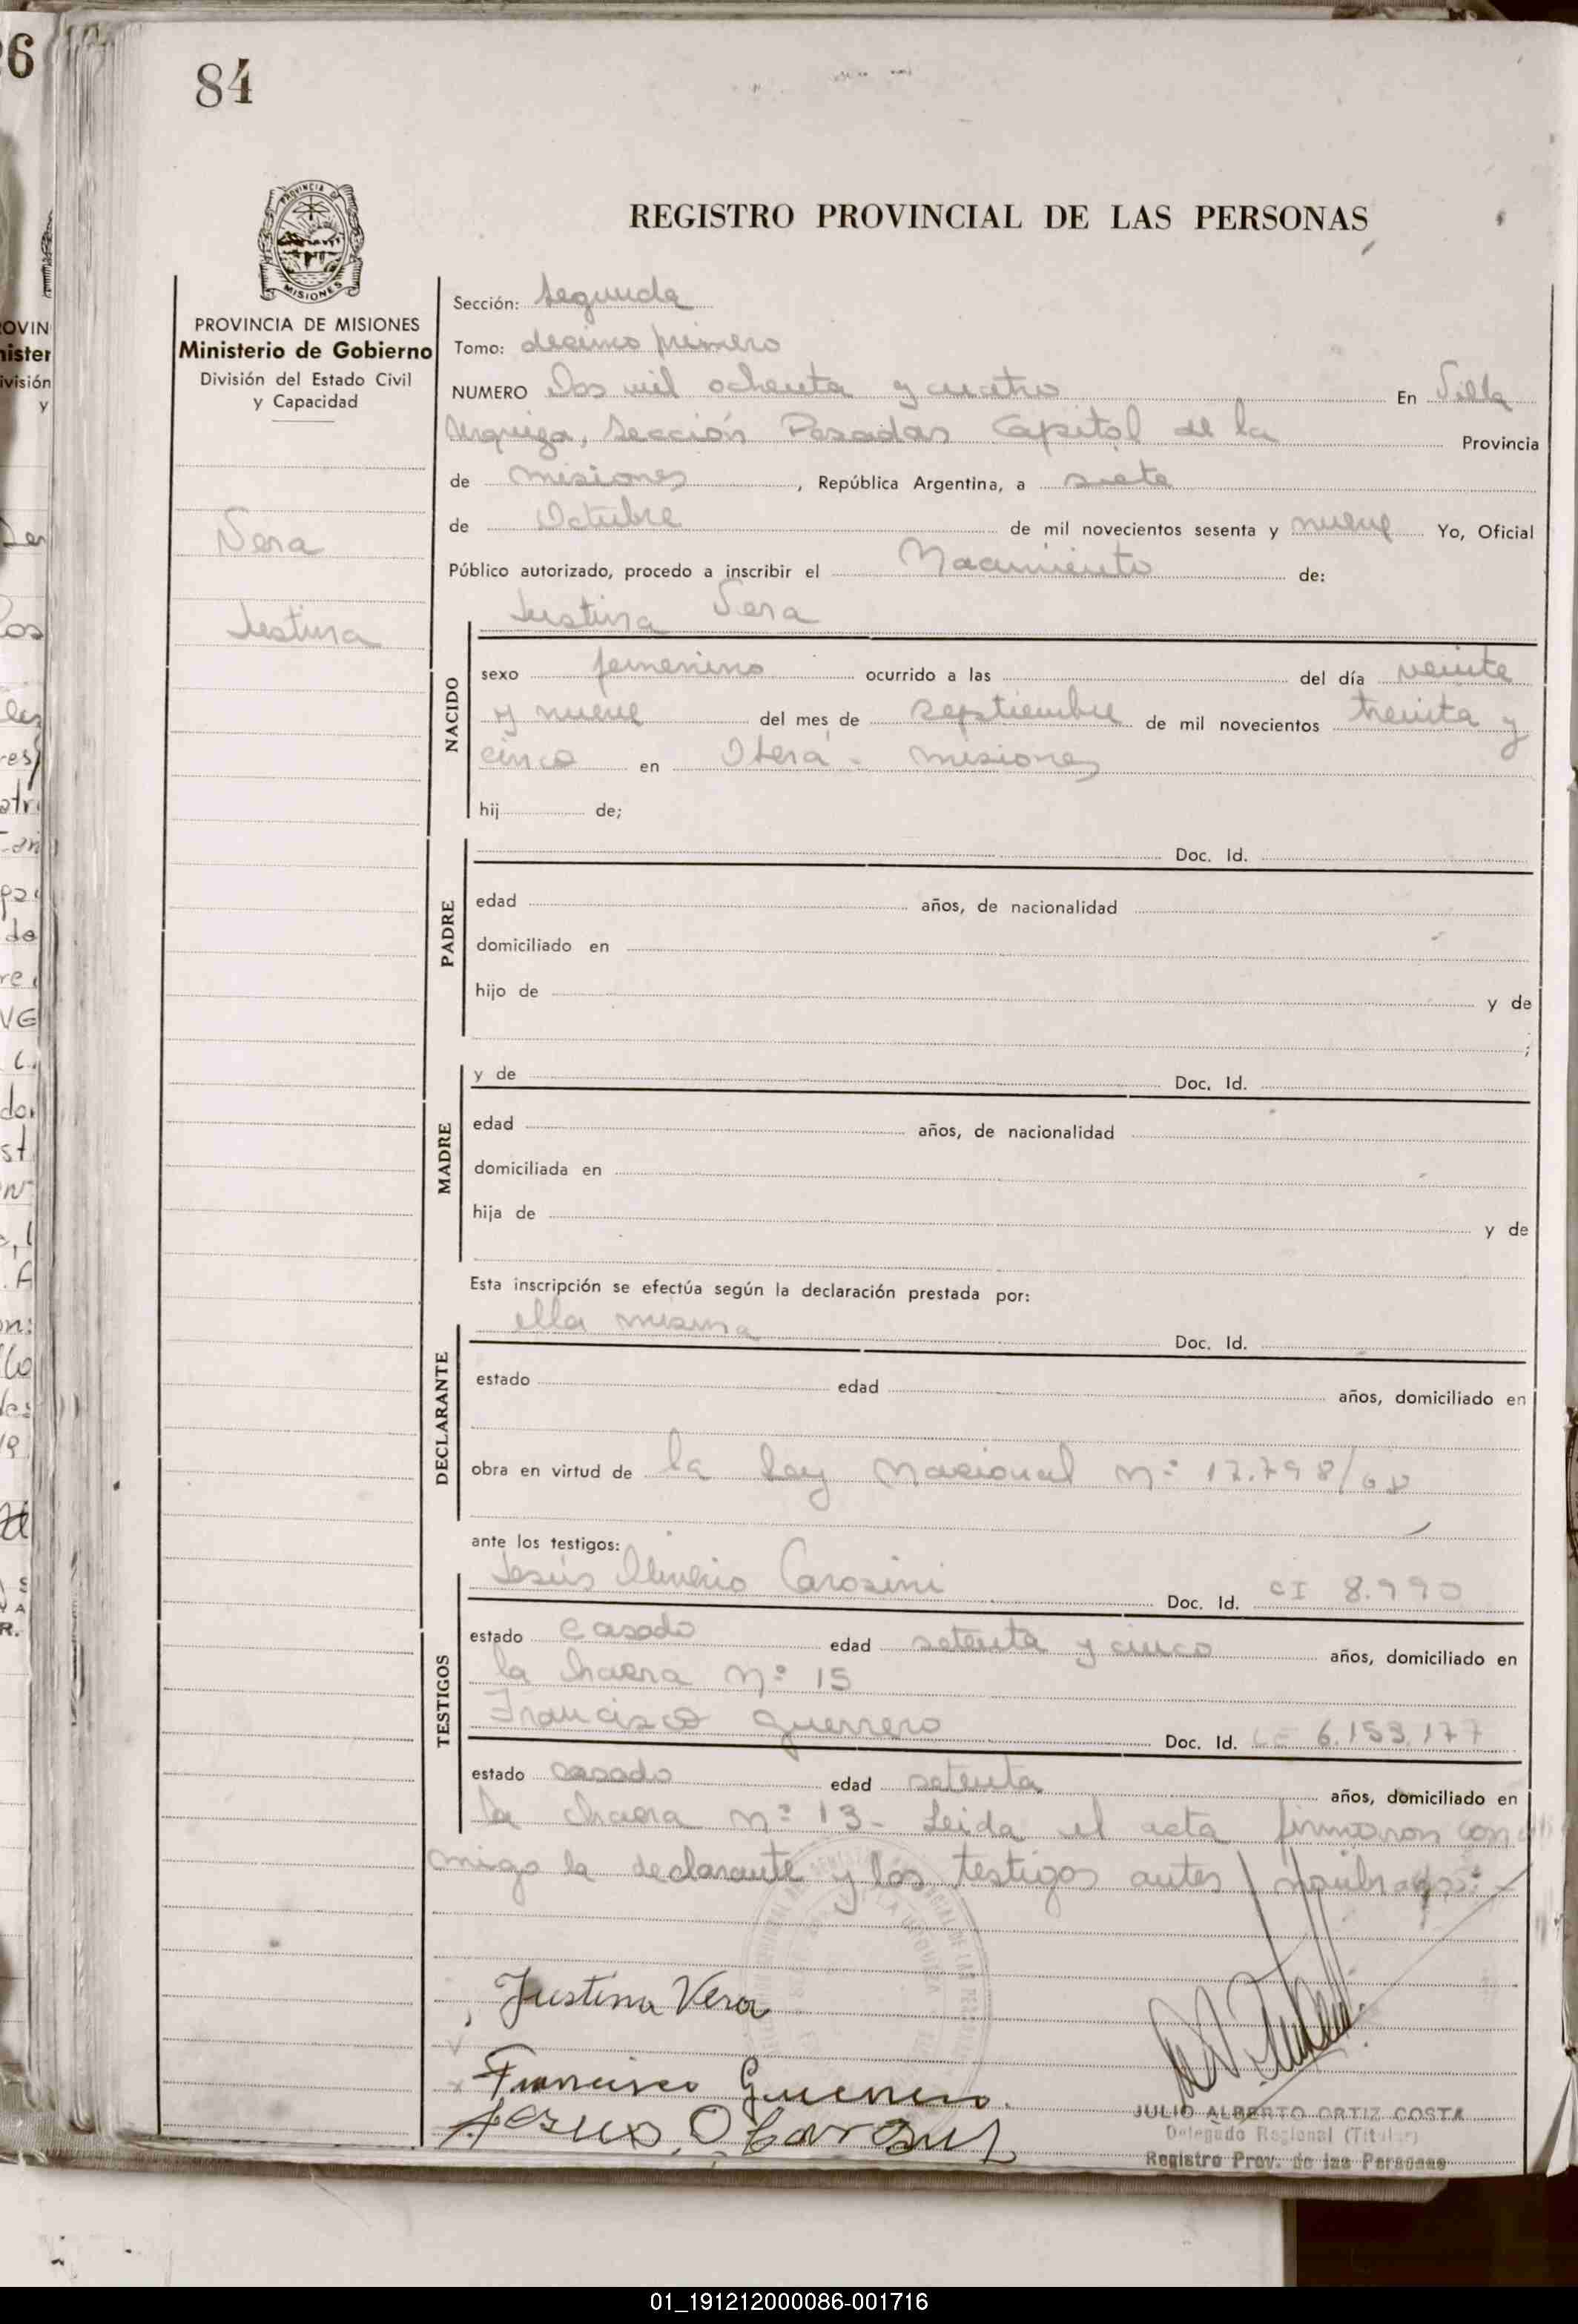 84
REGISTRO PROVINCIAL DE LAS PERSONAS
PROVINCIA DE MISIONES
Ministerio de Gobierno
División del Estado Civil
y Capacidad
Vera
Justina
Sección: Segunda
Tomo: decimo primero
NUMERO Dos mil ochenta y cuatro En Villa
Urquiza, Sección Posadas Capital de la Provincia
de Misiones, República Argentina, a siete
de Octubre de mil novecientos sesenta y nueve Yo, Oficial
Público autorizado, procedo a inscribir el Nacimiento de:
Justina Vera
NACIDO
sexo femenino ocurrido a las del día veinte
y nueve del mes de septiembre de mil novecientos treinta y
cinco en Oberá - Misiones
hij de;
PADRE
Doc. Id.
edad años, de nacionalidad
domiciliado en
hijo de y de
;
MADRE
y de Doc. Id.
edad años, de nacionalidad
domiciliada en
hija de y de
Esta inscripción se efectúa según la declaración prestada por:
DECLARANTE
ella misma Doc. Id.
estado edad años, domiciliado en
obra en virtud de la Ley Nacional Nº 17.798/68
ante los testigos:
TESTIGOS
Jesús Carosini Doc. Id. CI 8.990
estado casado edad setenta y cinco años, domiciliado en
la chacra Nº 15
Francisco Guerrero Doc. Id. LE 6.153.177
estado casado edad setenta años, domiciliado en
la chacra Nº 13- Leida el acta firmaron con
migo la declarante y los testigos antes nombrados:-
Justina Vera
Francisco Guerrero.
Jesus O Carosini
JULIO ALBERTO ORTIZ COSTA
Delegado Regional (Titular)
Registro Prov. de las Personas
01_191212000086-001716